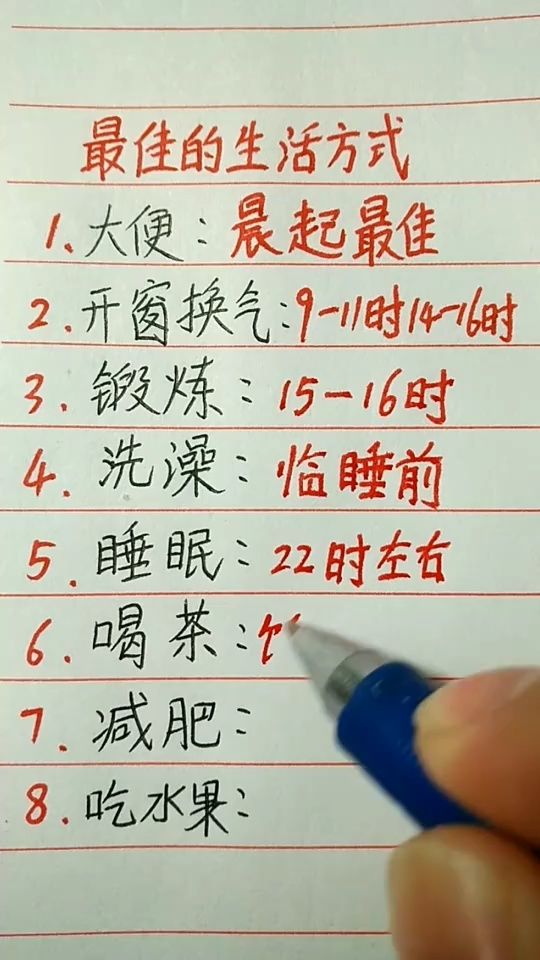 最佳的生活方式
1、大便：晨起最佳
2.开窗换气：9-11时14-16时
3.锻炼：15-16时
4.洗澡：临睡前
5.睡眠：22时左右
6.喝茶：
7.减肥：
8.吃水果：